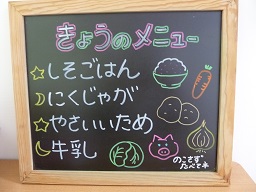 きょうのメニュー
しそごはん
にくじゃが
やさいいため
牛乳
のこさず
たべてネ